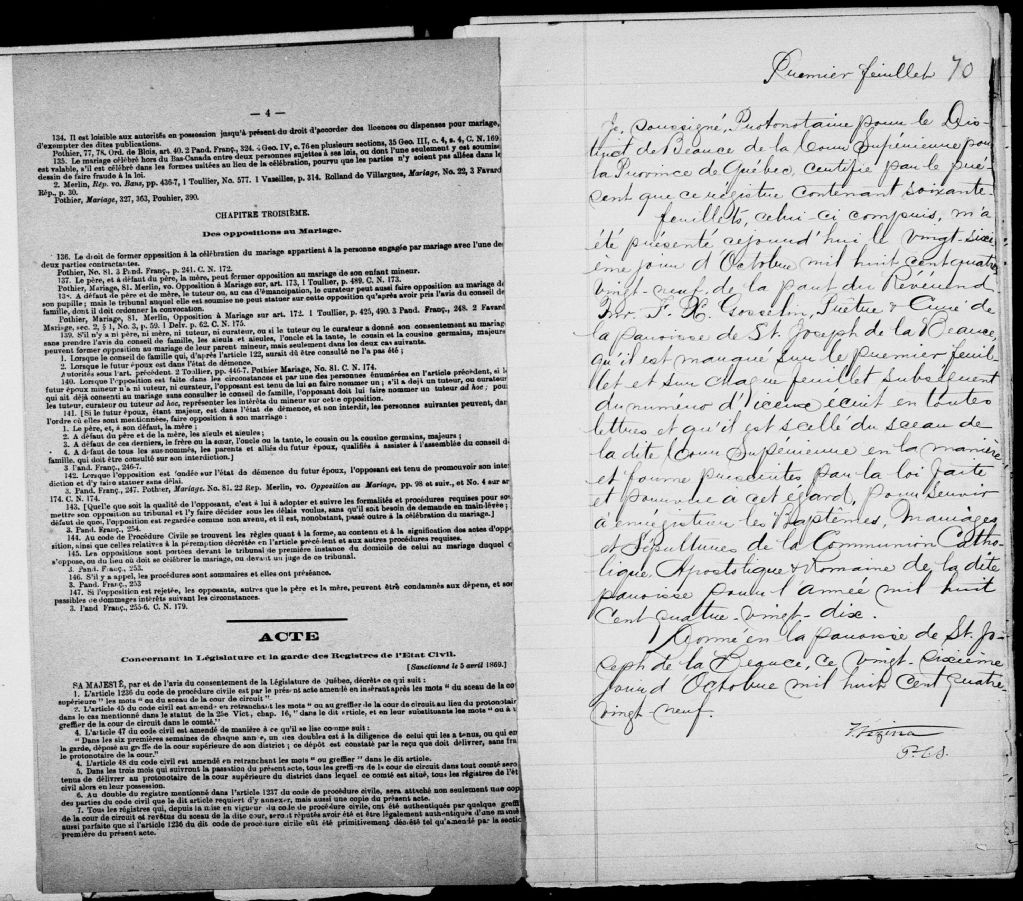 — 4 —
134. Il est loisible aux autorités en possession jusqu'à présent du droit d'accorder des licences ou dispenses pour mariage,
d'exempter des dites publications.
Pothier, 77, 78. Ord. de Blois, art. 40. 2 Pand. Franç., 324. 4 Geo. IV, c. 76 en plusieurs sections, 35 Geo. III, c. 4, s. 4, C. N. 169
135. Le mariage célébré hors du Bas-Canada entre deux personnes sujettes à ses lois, ou dont l'une seulement y est soumise
est valable, s'il est célébré dans les formes usitées au lieu de la célébration, pourvu que les parties n'y soient pas allées dans le
dessin de faire fraude à la loi.
2. Merlin, Rép. vo. Bans, pp. 436-7, 1 Toullier, No. 577. 1 Vazeilles, p. 314. Rolland de Villargues, Mariage, No. 22, 3 Favard
Rép., p. 30.
Pothier, Mariage, 327, 363, Pouhier, 390.
CHAPITRE TROISIÈME.
Des oppositions au Mariage.
136. Le droit de former opposition à la célébration du mariage appartient à la personne engagée par mariage avec l'une des
deux parties contractantes.
Pothier, No. 81. 3 Pand. Franç., p. 241. C. N. 172.
137. Le père, et à défaut du père, la mère, peut former opposition au mariage de son enfant mineur.
Pothier, Mariage, 81. Merlin, vo. Opposition à Mariage sur, art. 173, 1 Toullier, p. 489. C. N. 173.
138. A défaut de père et de mère, le tuteur ou, au cas d'émancipation, le curateur peut aussi faire opposition au mariage de
son pupille; mais le tribunal auquel elle est soumise ne peut statuer sur cette opposition qu'après avoir pris l'avis du conseil de
famille, dont il doit ordonner la convocation.
Pothier, Mariage, 81, Merlin, Opposition à Mariage sur art. 172. 1 Toullier, p. 425, 490. 3 Pand. Franç., 248. 2 Favard
Mariage, sec. 2, § 1, No. 3, p. 59. 1 Delv. p. 62. C. N. 175.
139. S'il n'y a ni père, ni mère, ni tuteur, ni curateur, ou si le tuteur ou le curateur a donné son consentement au mariage
sans prendre l'avis du conseil de famille, les aïeuls et aïeules, l'oncle et la tante, le cousin et la cousine germains, majeurs
peuvent former opposition au mariage de leur parent mineur, mais seulement dans les deux cas suivants.
1. Lorsque le conseil de famille qui, d'après l'article 122, aurait dû être consulté ne l'a pas été;
2. Lorsque le futur époux est dans l'état de démence.
Autorités sous l'art. précédent. 2 Toullier, pp. 446-7. Pothier Mariage, No. 81. C. N. 174.
140. Lorsque l'opposition est faite dans les circonstances et par une des personnes énumérées en l'article précédent, si le
futur époux mineur n'a ni tuteur, ni curateur, l'opposant est tenu de lui en faire nommer un; s'il a déjà un tuteur, ou curateur
qui ait déjà consenti au mariage sans consulter le conseil de famille, l'opposant doit lui faire nommer un tuteur ad hoc; pour
les tuteur, curateur ou tuteur ad hoc, représenter les intérêts du mineur sur cette opposition.
141. [Si le futur époux, étant majeur, est dans l'état de démence, et non interdit, les personnes suivantes peuvent, dans
l'ordre où elles sont mentionnées, faire opposition à son mariage:
1. Le père, et, à son défaut, la mère;
2. A défaut du père et de la mère, les aïeuls et aïeules;
3. A défaut de ces derniers, le frère ou la sœur, l'oncle ou la tante, le cousin ou la cousine germains, majeurs;
4. A défaut de tous les sus-nommés, les parents et alliés du futur époux, qualifiés à assister à l'assemblée du conseil de
famille, qui doit être consulté sur son interdiction.]
3 Pand. Franç., 246-7.
142. Lorsque l'opposition est fondée sur l'état de démence du futur époux, l'opposant est tenu de promouvoir son inter
diction et d'y faire statuer sans délai.
3. Pand. Franç., 247. Pothier, Mariage. No. 81. 22 Rep. Merlin, vo. Opposition au Mariage, pp. 98 et suiv., et No. 4 sur ar
174. C. N. 174.
143. [Quelle que soit la qualité de l'opposant, c'est à lui à adopter et suivre les formalités et procédures requises pour sou
mettre son opposition au tribunal et l'y faire décider sous les délais voulus, sans qu'il soit besoin de demande en main-levée;
défaut de quoi, l'opposition est regardée comme non avenu, et il est, nonobstant, passé outre à la célébration du mariage.]
3. Pand. Franç., 254.
144. Au code de Procédure Civile se trouvent les règles quant à la forme, au contenu et à la signification des actes d'oppo
sition, ainsi que celles relatives à la péremption décrétée en l'article précédent et aux autres procédures requises.
145. Les oppositions sont portées devant le tribunal de première instance du domicile de celui au mariage duquel o
s'oppose, ou du lieu où doit se célébrer le mariage, ou devant un juge de ce tribunal.
3. Pand. Franç., 253.
146. S'il y a appel, les procédures sont sommaires et elles ont préséance.
3. Pand. Franç., 253
147. Si l'opposition est rejetée, les opposants, autres que le père et la mère, peuvent être condamnés aux dépens, et son
passibles de dommages intérêts suivant les circonstances.
3. Pand Franç., 255-6. C. N. 179.
ACTE
Concernant la Législature et la garde des Registres de l'Etat Civil.
[Sanctionné le 5 avril 1869.]
SA MAJESTÉ, par et de l'avis du consentement de la Législature de Québec, décrète ce qui suit:
1. L'article 1236 du code de procédure civile est par le présent acte amendé en insérant après les mots "du sceau de la cou
supérieure" les mots "ou du sceau de la cour de circuit".
2. L'article 45 du code civil est amendé en retranchant les mots "ou au greffier de la cour de circuit au lieu du protonotair
dans le cas mentionné dans le statut de la 25e Vict., chap. 16," dans le dit article, et en leur substituants les mots "ou à u
greffier de la cour de circuit dans le comté."
4. L'article 47 du code civil est amendé de manière à ce qu'il se lise comme suit:
"Dans les six premières semaines de chaque année, un des doubles est à la diligence de celui qui les a tenus, ou qui en
la garde, déposé au greffe de la cour supérieure de son district; ce dépôt est constaté par le reçu que doit délivrer, sans fra
le protonotaire de la cour."
4. L'article 48 du code civil est amendé en retranchant les mots "ou greffier" dans le dit article.
5. Dans les trois mois qui suivront la passation du présent acte, tous les greffiers de la cour de circuit dans tout comté sero
tenus de délivrer au protonotaire de la cour supérieure du district dans lequel ce comté est situé, tous les régistres de l'ét
civil alors en leur possession.
6. Au double du registre mentionné dans l'article 1237 du code de procédure civile, sera attaché non seulement une cop
des parties du code civil que le dit article requiert d'y annexer, mais aussi une copie du présent acte.
7. Tous les régistres qui, depuis la mise en vigueur du code de procédure civile, ont été authentiqués par quelque greffi
de la cour de circuit et revêtus du sceau de la dite cour, seront réputés avoir été et être légalement authentiques d'une maniè
aussi parfaite que si l'article 1236 du dit code de procédure civile eût été primitivement décrété tel qu'amendé par la sectio
première du présent acte.
Premier feuillet 70
Je, soussigné, Protonotaire pour le Dis-
trict de Beauce de la Cour Supérieure pour
la Province de Québec, certifie par le pré-
sent que ce régistre contenant soixante-
feuillets, celui-ci compris, m'a
été présenté cejourd'hui le vingt-sixi
ème jour d'Octobre mil huit cent quatre
vingt-neuf de la part du Révérend
Mr. Gosselin, Prêtre & Curé de
la paroisse de St. Joseph de la Beauce,
qu'il est marqué sur le premier feuil-
let et sur chaque feuillet subséquent
du numéro d'iceux écrit en toutes
lettres et qu'il est scellé du sceau de
la dite Cour Supérieure en la manière
et forme prescrites par la loi faite
et pourvue à cet égard, pour servir
à enregistrer les Baptêmes, Mariages
et Sépultures de la Communion Catho-
lique, Apostolique & Romaine de la dite
paroisse pour l'année mil huit
cent quatre-vingt-dix.
Donné en la paroisse de St. Jo-
seph de la Beauce, ce vingt-sixième
jour d'Octobre mil huit cent quatre
vingt neuf.
Vézina
P.C.S.